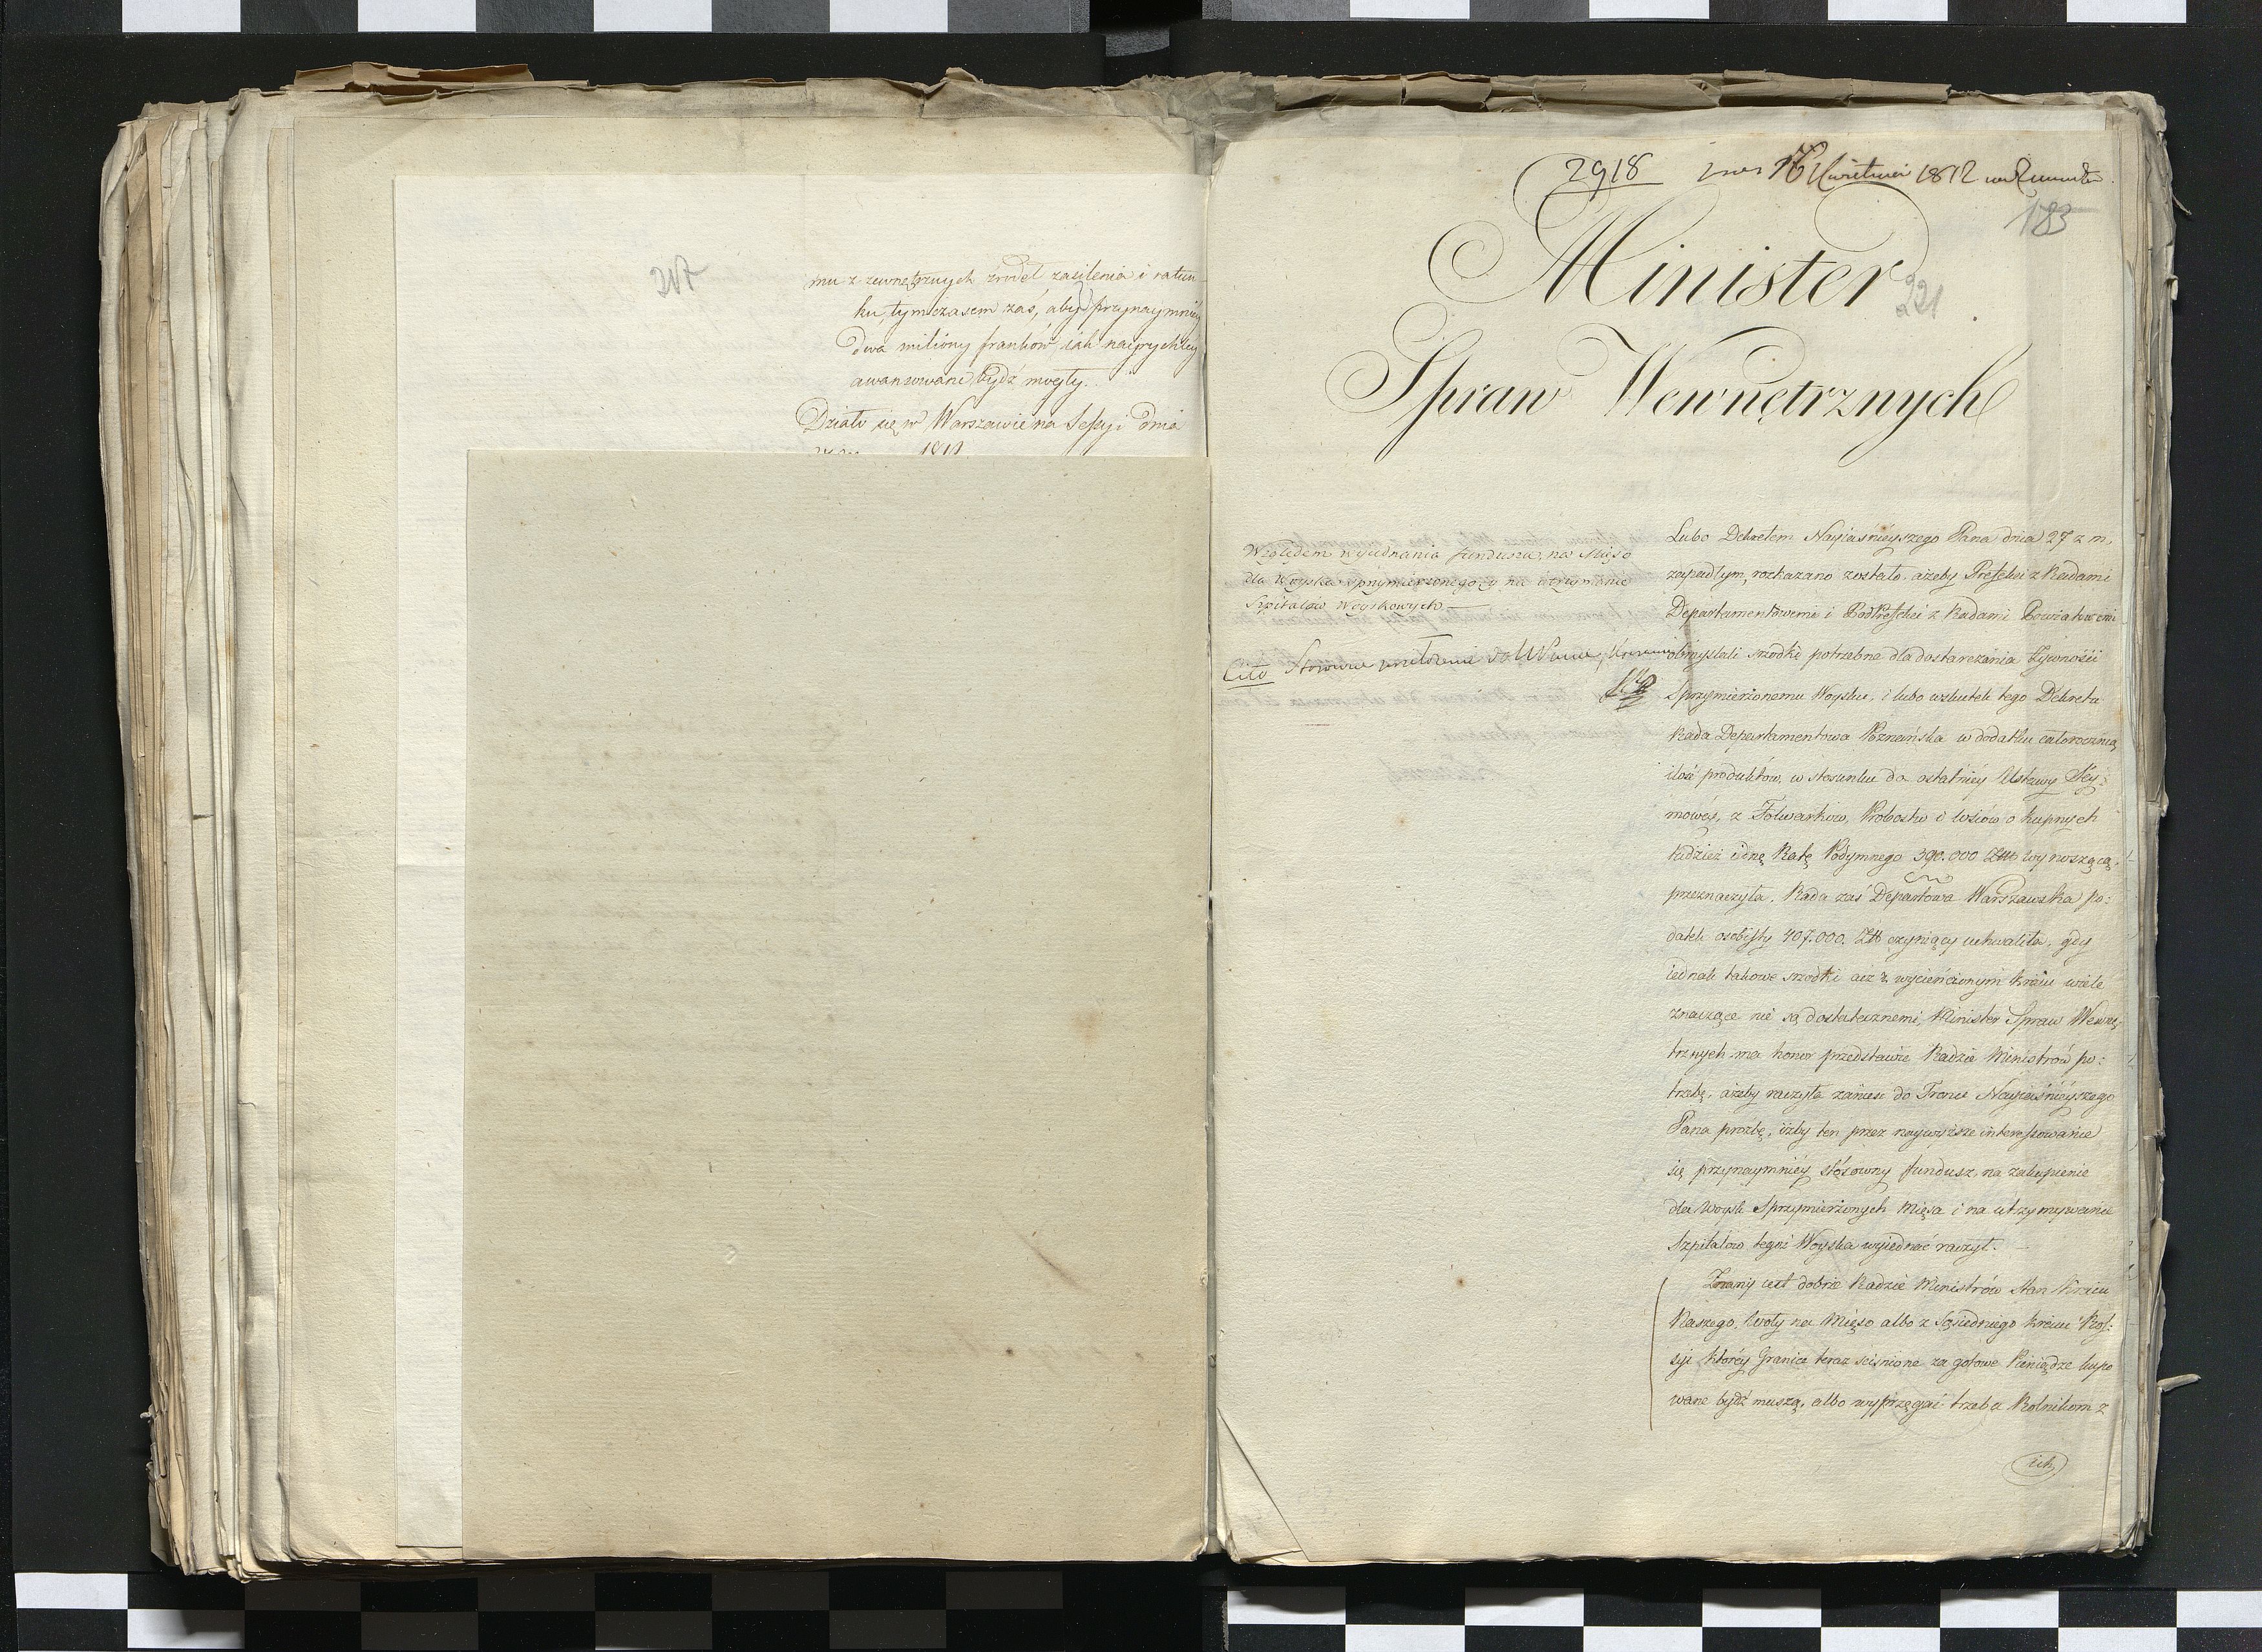 217
mu z zewnętrznych źródeł zasilenia i ratun
ku, tymczasem zaś, aby przynaymniey
dwa miliony franków iak nayprychley
awansowane bydź mogły.
Działo się w Warszawie na Sessyi dnia
1811.
2918 16 Kwietnia 1812
183
221
Minister
Spraw Wewnętrznych
Względem wyiednania funduszu, na Mięso
dla Woyska sprzymierzonego, i na utrzymanie
Szpitalów Woyskowych.
Cito Stosowne przełożenie do
Lubo Dekretem Nayiaśnieyszego Pana dnia 27 z. m.
zapadłym, rozkazano zostało, ażeby Prefekci z Radami
Departamentowemi i PodPrefekci z Radami Powiatowemi
obmyślali srzodki potrzebne dla dostarczania Żywności
Sprzymierzonemu Woysku, i lubo wskutek tego Dekretu
Rada Departamentowa Poznańska w dodatku całoroczną
ilość produktów, w stosunku do ostatniey Ustawy Sey:
mowéy, z Folwarków, Probostw i Wsiów okupnych
tudzież iednę Ratę Podymnego 390.000 Złł wynoszącą,
przeznaczyła, Rada zaś Departowa Warszawska po:
datek osobisty 407.000. Złł czyniący uchwaliła, gdy
iednak takowe srzodki acz w wycieńczonym kraiu wiele
znaczące nie są dostatecznemi, Minister Spraw Wewnę:
trznych ma honor przedstawić Radzie Ministrów po:
trzebę, ażeby raczyła zanieść do Tronu Nayiaśnieyszego
Pana prozbę, iżby ten przez naywyższe interessowanie
się przynaymniéy stósowny fundusz na zakupienie
dla Woysk Sprzymierzonych Mięsa i na utrzymywanie
Szpitalów tegoż Woyska wyiednać raczył.
Znany iest dobrze Radzie Ministrów Stan Kraiu
Naszego, woły na Mięso albo z Sąsiedniego kraiu Ros:
syi któréy Granice teraz ściśnione za gotowe Pieniądze kupo
wane bydź muszą, albo wyprzęgać trzeba Rolnikom z
ich